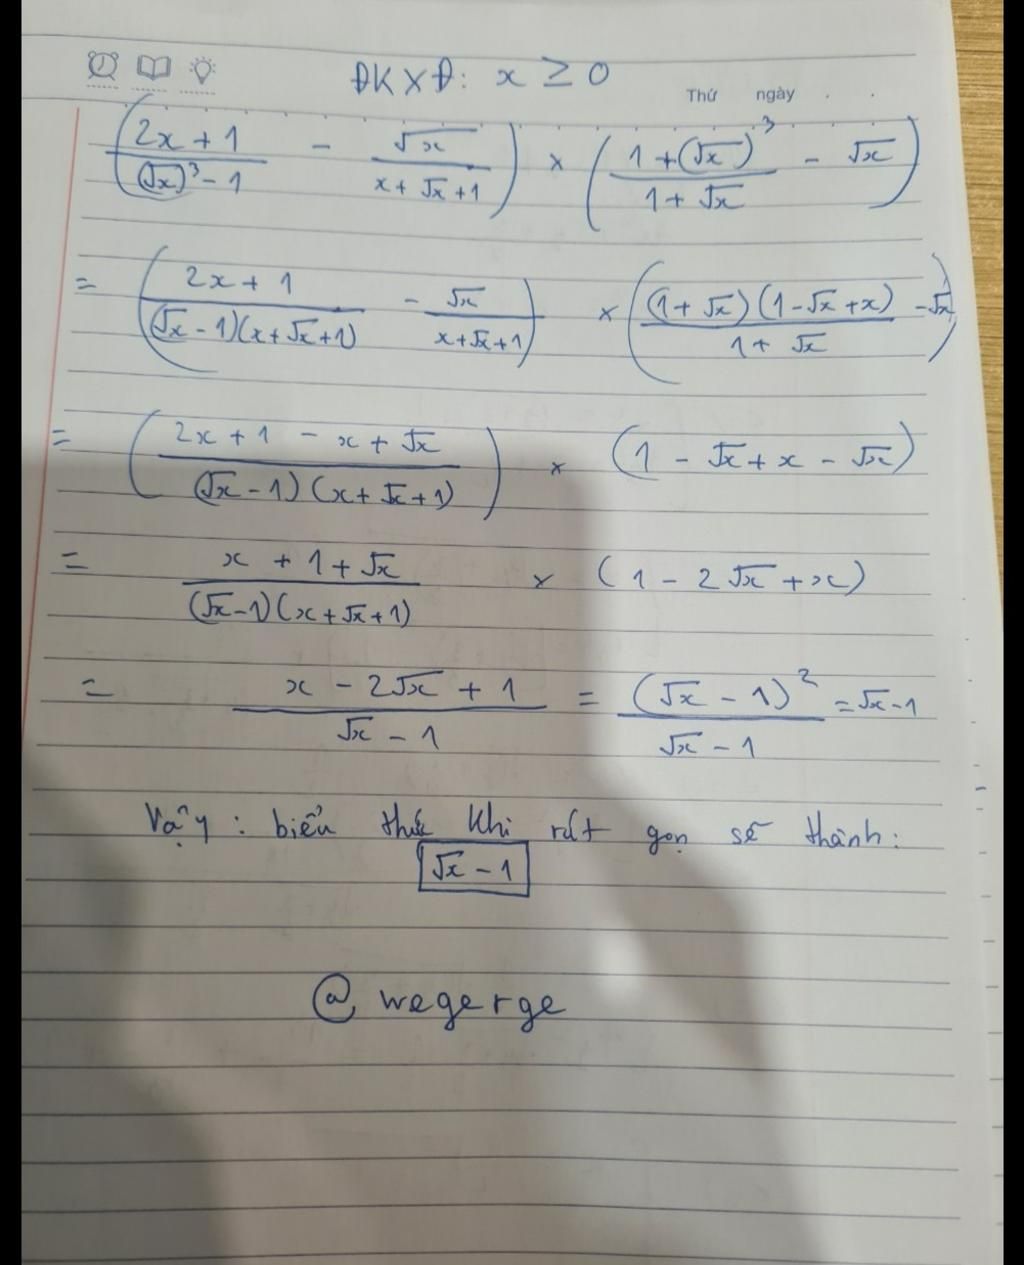 ĐKXĐ: x ≥ 0
Thứ ngày . .
((2x + 1)/((√x)³ - 1) - √x/(x + √x + 1)) × ((1 + (√x)³)/(1 + √x) - √x)
= ((2x + 1)/((√x - 1)(x + √x + 1)) - √x/(x + √x + 1)) × (((1 + √x)(1 - √x + x))/(1 + √x) - √x)
= ((2x + 1 - x + √x)/((√x - 1)(x + √x + 1))) × (1 - √x + x - √x)
= (x + 1 + √x)/((√x - 1)(x + √x + 1)) × (1 - 2√x + x)
= (x - 2√x + 1)/(√x - 1) = (√x - 1)²/(√x - 1) = √x - 1
Vậy : biểu thức khi rút gọn sẽ thành:
√x - 1
@ wegerge